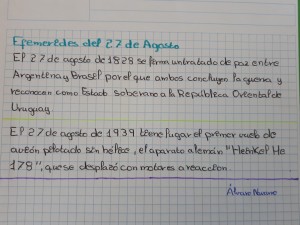 Efemerides del 27 de Agosto
El 27 de agosto de 1828 se firma un tratado de paz entre
Argentina y Brasil por el que ambos concluyen la guerra y
reconocen como Estado soberano a la República Oriental de
Uruguay.
El 27 de agosto de 1939 tiene lugar el primer vuelo de
avión pilotado sin hélices, el aparato alemán "Heinkel He
178", que se desplazó con motores a reacción.
Álvaro